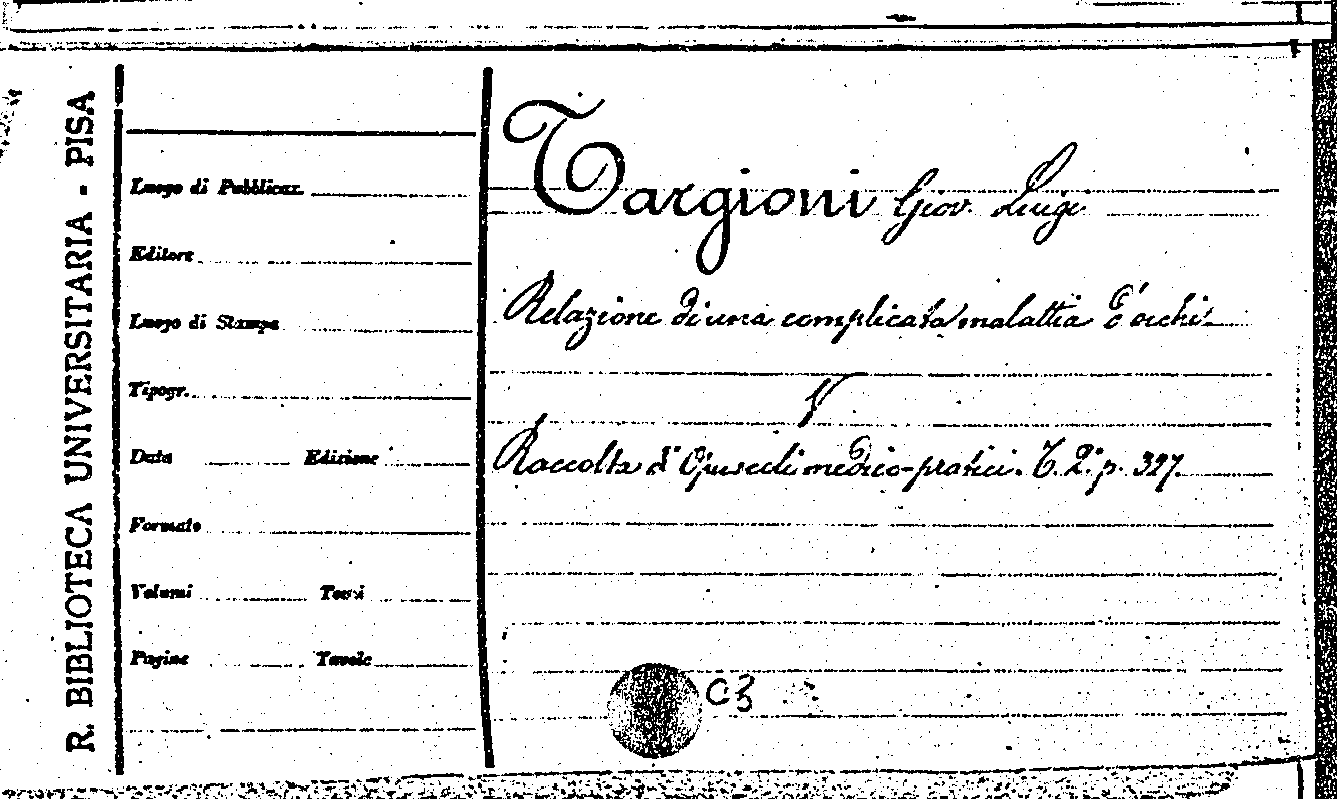 R. BIBLIOTECA UNIVERSITARIA - PISA
Luogo di Pubblicaz.
Editore
Luogo di Stampa
Tipogr.
Data Edizione
Formato
Volumi Tomi
Pagine Tavole
Targioni Giov. Luigi
Relazione di una complicata malattia d'occhi
V
Raccolta d'Opuscoli medico-pratici. T. 2º p. 327.
C3